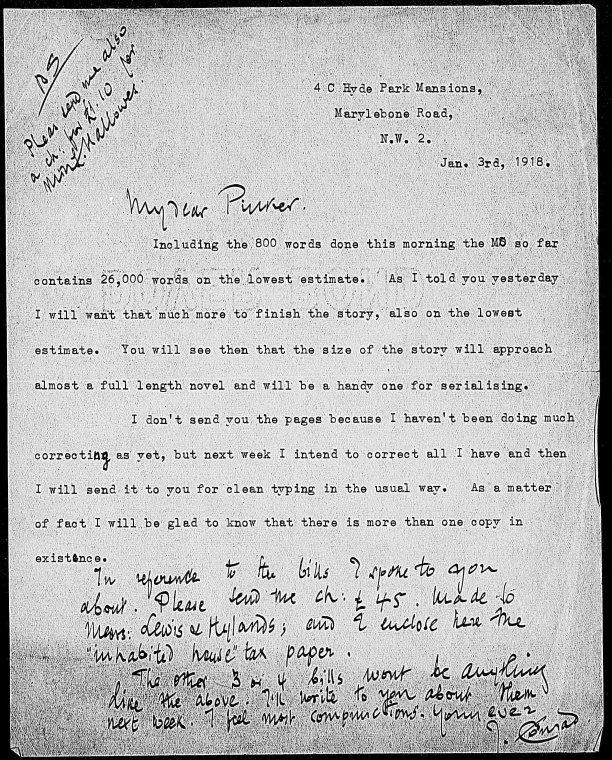 PS
Please send me also
a ch: for £1.10 for
Miss Hallowes.
4 C Hyde Park Mansions,
Marylebone Road,
N.W. 2.
Jan. 3rd, 1918.
My dear Pinker.
Including the 800 words done this morning the MS so far
contains 26,000 words on the lowest estimate. As I told you yesterday
I will want that much more to finish the story, also on the lowest
estimate. You will see then that the size of the story will approach
almost a full length novel and will be a handy one for serialising.
I don't send you the pages because I haven't been doing much
correcting as yet, but next week I intend to correct all I have and then
I will send it to you for clean typing in the usual way. As a matter
of fact I will be glad to know that there is more than one copy in
existence.
In reference to the bills I spoke to you
about. Please send me ch: £45. made to
Messrs: Lewis & Hylands; and I enclose here the
"inhabited house" tax paper.
The other 3 or 4 bills wont be anything
like the above. I'll write to you about them
next week. I feel most compunctions. Yours ever
J. Conrad